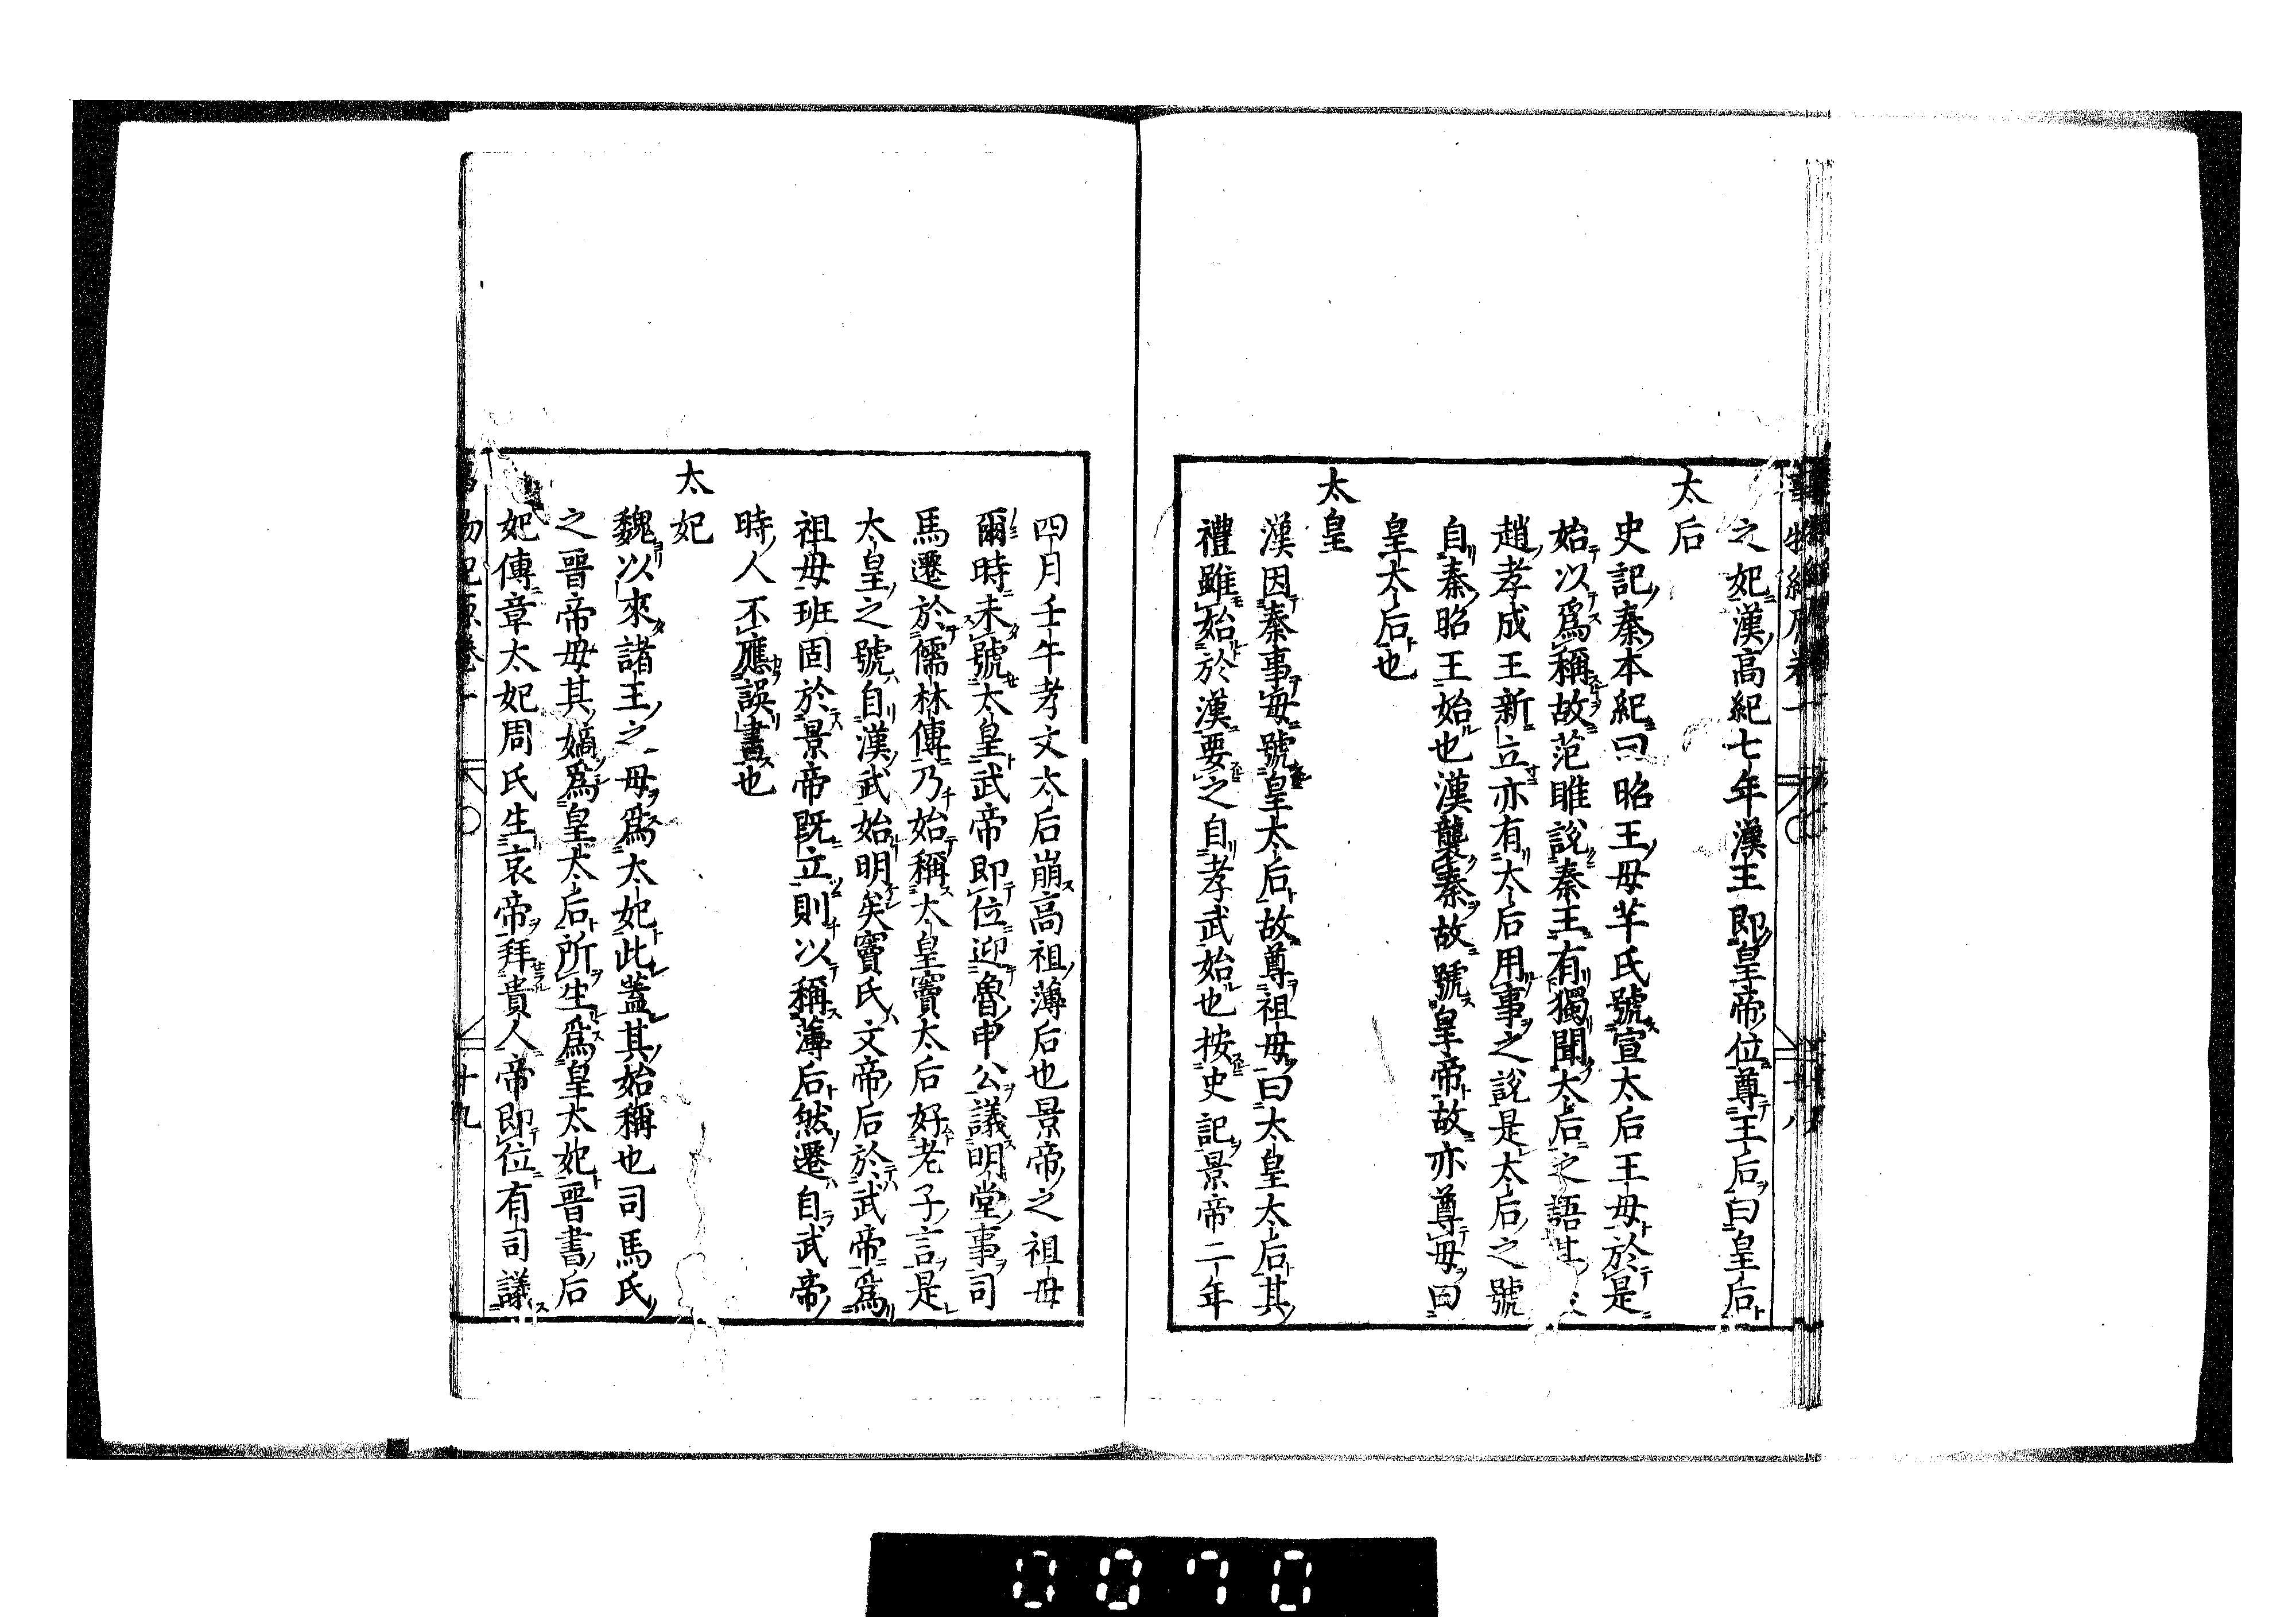 之妃漢高紀七年漢王即皇帝位尊王后曰皇后
太后
史記秦本紀曰昭王母芈氏號宣太后王母於是
始以為稱故范雎說秦王有獨聞太后之語其
趙孝成王新立亦有太后用事之說是太后之號
自秦昭王始也漢襲秦故號皇帝故亦尊母曰
皇太后也
太皇
漢因秦事每號皇太后故尊祖母曰太皇太后其
禮雖始於漢要之自孝武始也按史記景帝二年
四月壬午孝文太后崩高祖薄后也景帝之祖母
爾時未號太皇武帝即位迎魯申公議明堂事司
馬遷於儒林傳乃始稱太皇竇太后好老子言是
太皇之號自漢武始明矣竇氏文帝后於武帝為
祖母班固於景帝既立則以稱薄后然遷自武帝
時人不應誤書也
太妃
魏以來諸王之母爲太妃此蓋其始稱也司馬氏
之晋帝母其嫡爲皇太后所生爲皇太妃晋書后
妃傳章太妃周氏生哀帝拜貴人帝即位有司議
十九
0070